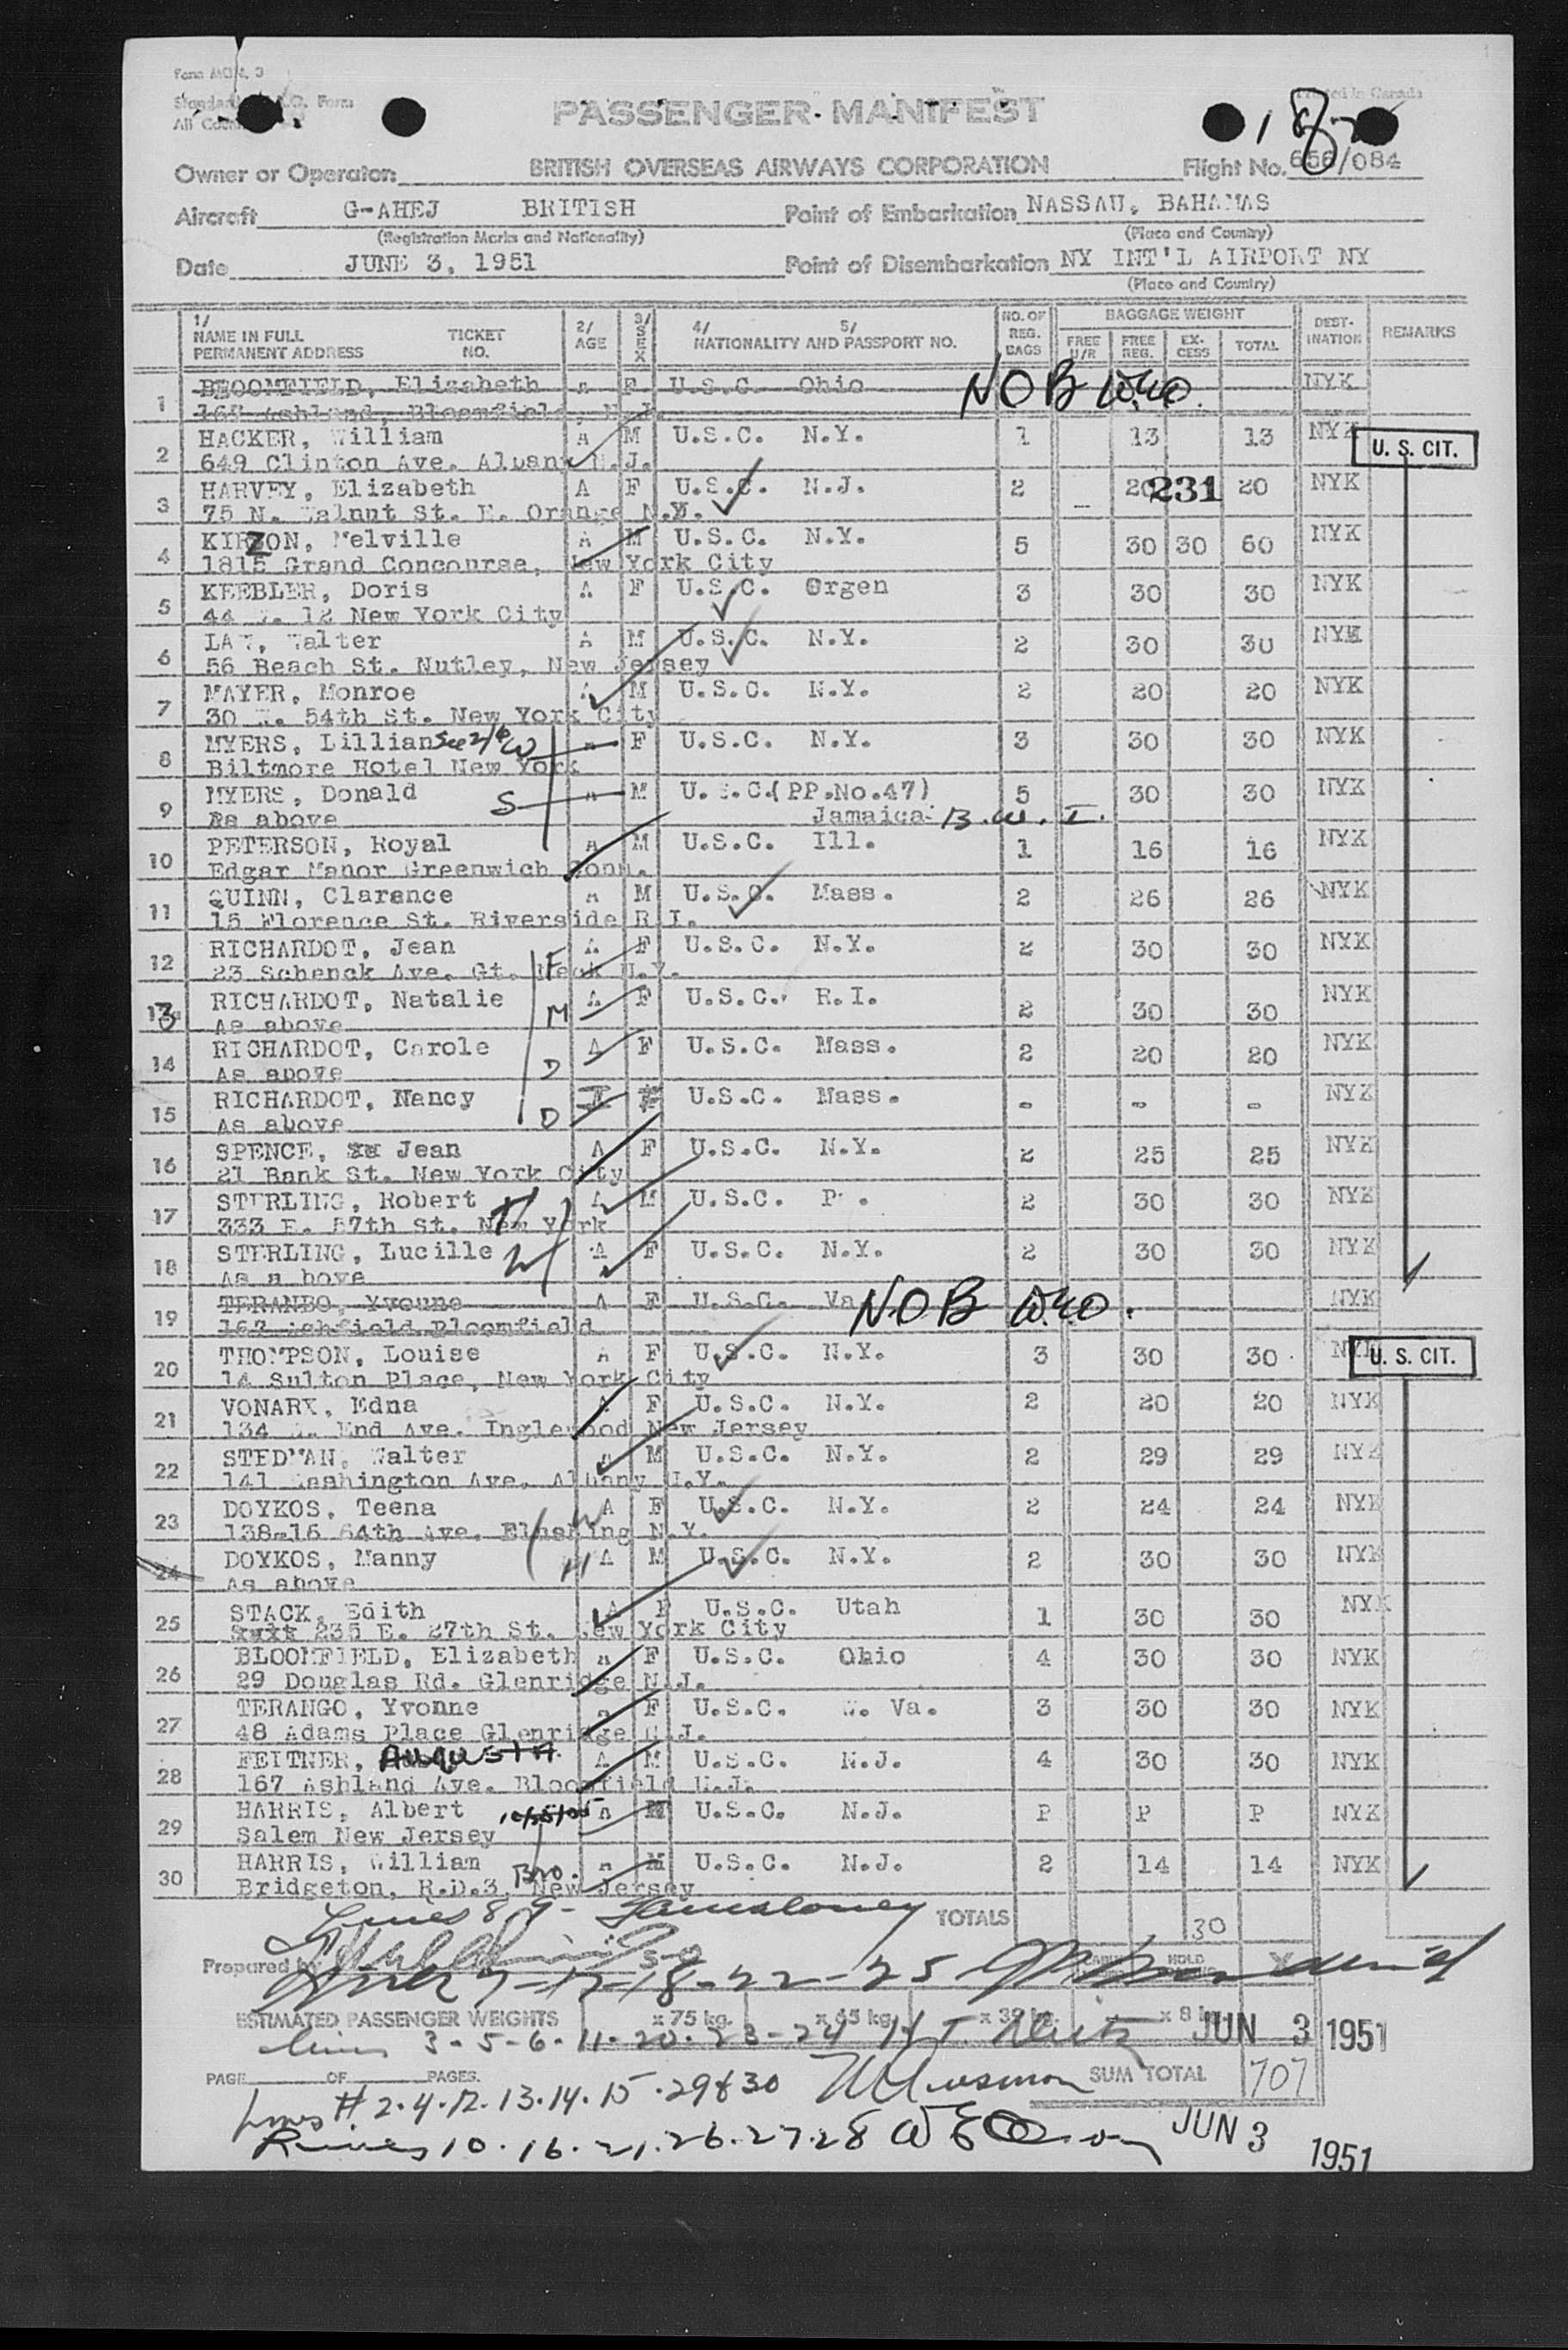 Form
Standard Form Printed in Canada
All
PASSENGER MANIFEST
Owner or Operator BRITISH OVERSEAS AIRWAYS CORPORATION Flight No. 656/084
Aircraft G-AHEJ BRITISH Point of Embarkation NASSAU, BAHAMAS
(Registration Marks and Nationality) (Place and Country)
Date JUNE 3, 1951 Point of Disembarkation NY INT'L AIRPORT NY
(Place and Country)
1/ NAME IN FULL PERMANENT ADDRESS TICKET NO. 2/ AGE 3/ SEX 4/ NATIONALITY AND 5/ PASSPORT NO. NO. OF REG. BAGS BAGGAGE WEIGHT FREE U/R FREE REG. EX-CESS TOTAL DEST-INATION REMARKS
1 BLOOMFIELD, Elizabeth A F U.S.C. Ohio NOB NYK
167 Ashland, Bloomfield, N.J.
2 HACKER, William A M U.S.C. N.Y. 1 13 13 NYK U. S. CIT.
649 Clinton Ave. Albany N.J.
3 HARVEY, Elizabeth A F U.S.C. N.J. 2 20 231 20 NYK
75 N. Walnut St. E. Orange N.Y.
4 KIRZON, Melville A M U.S.C. N.Y. 5 30 30 60 NYK
1815 Grand Concourse, New York City
5 KEEBLER, Doris A F U.S.C. Orgen 3 30 30 NYK
44 12 New York City
6 Walter A M U.S.C. N.Y. 2 30 30 NYK
56 Beach St. Nutley, New Jersey
7 MAYER, Monroe A M U.S.C. N.Y. 2 20 20 NYK
30 54th St. New York City
8 MYERS, Lillian W A F U.S.C. N.Y. 3 30 30 NYK
Biltmore Hotel New York
9 MYERS, Donald S A M U.S.C. (PP.No.47) 5 30 30 NYK
As above Jamaica B.W.I.
10 PETERSON, Royal A M U.S.C. Ill. 1 16 16 NYK
Edgar Manor Greenwich Conn.
11 QUINN, Clarence A M U.S.C. Mass. 2 26 26 NYK
15 Florence St. Riverside R.I.
12 RICHARDOT, Jean F A F U.S.C. N.Y. 2 30 30 NYK
23 Schenck Ave. Gt. Neck N.Y.
13 RICHARDOT, Natalie M A F U.S.C. R.I. 2 30 30 NYK
As above
14 RICHARDOT, Carole D A F U.S.C. Mass. 2 20 20 NYK
As above
15 RICHARDOT, Nancy D U.S.C. Mass. - - - NYK
As above
16 SPENCE, Jean A F U.S.C. N.Y. 2 25 25 NYK
21 Bank St. New York City
17 STERLING, Robert H A M U.S.C. 2 30 30 NYK
333 E. 57th St. New York
18 STERLING, Lucille W A F U.S.C. N.Y. 2 30 30 NYK
As a bove
19 Yvoune A F U.S.C. Va NOB NYK
167 Ashfield Bloomfield
20 THOMPSON, Louise A F U.S.C. N.Y. 3 30 30 NYK U. S. CIT.
14 Sulton Place, New York City
21 VONARX, Edna A F U.S.C. N.Y. 2 20 20 NYK
134 End Ave. Inglewood New Jersey
22 STEDMAN, Walter A M U.S.C. N.Y. 2 29 29 NYK
141 Washington Ave. Albany N.Y.
23 DOYKOS, Teena W A F U.S.C. N.Y. 2 24 24 NYK
138-15 64th Ave. Flushing N.Y.
24 DOYKOS, Manny H A M U.S.C. N.Y. 2 30 30 NYK
As above
25 STACK, Edith A F U.S.C. Utah 1 30 30 NYK
235 E. 27th St. New York City
26 BLOOMFIELD, Elizabeth A F U.S.C. Ohio 4 30 30 NYK
29 Douglas Rd. Glenridge N.J.
27 TERANGO, Yvonne A F U.S.C. W. Va. 3 30 30 NYK
48 Adams Place Glenridge N.J.
28 FEITNER, AUGUSTA A M U.S.C. N.J. 4 30 30 NYK
167 Ashland Ave. Bloomfield N.J.
29 HARRIS, Albert A M U.S.C. N.J. P P P NYK
Salem New Jersey
30 HARRIS, William Bro. A M U.S.C. N.J. 2 14 14 NYK
Bridgeton, R.D.3, New Jersey
Lines 8 9 - TOTALS 30
Prepared by HOLD
7-17-18-22-25
ESTIMATED PASSENGER WEIGHTS x 75 kg. x 65 kg. x 39 kg. x 8 kg. JUN 3 1951
Lines 3-5-6-11-20-23-24
PAGE OF PAGES. SUM TOTAL 707
Lines # 2.4.12.13.14.15.29&30
10.16.21.26.27.28 JUN 3 1951